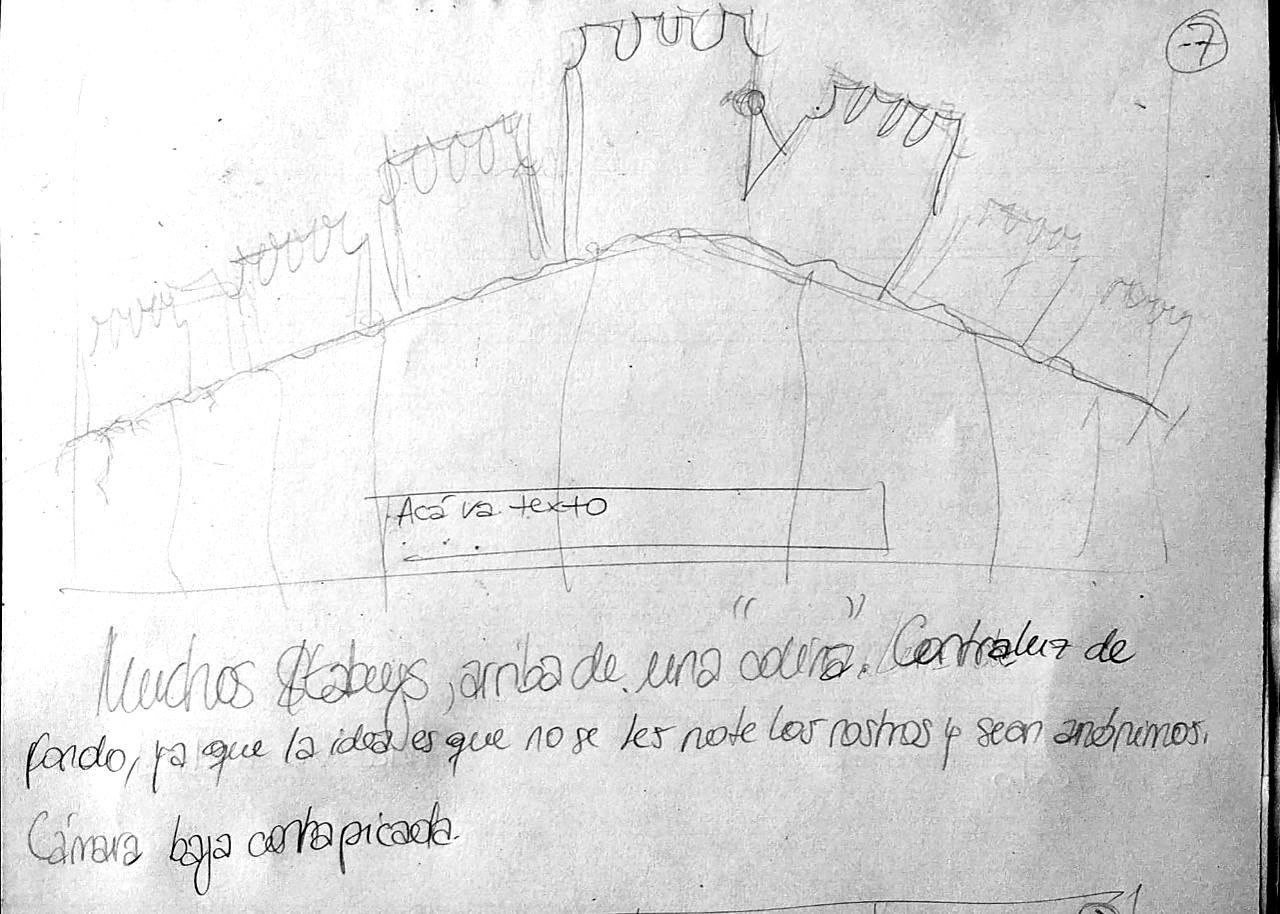 -7
Acá va texto
Muchos Stabuys, arriba de una "colina". Contraluz de
fondo, ya que la idea es que no se les note los rostros y sean anónimos.
Cámara baja contrapicada.